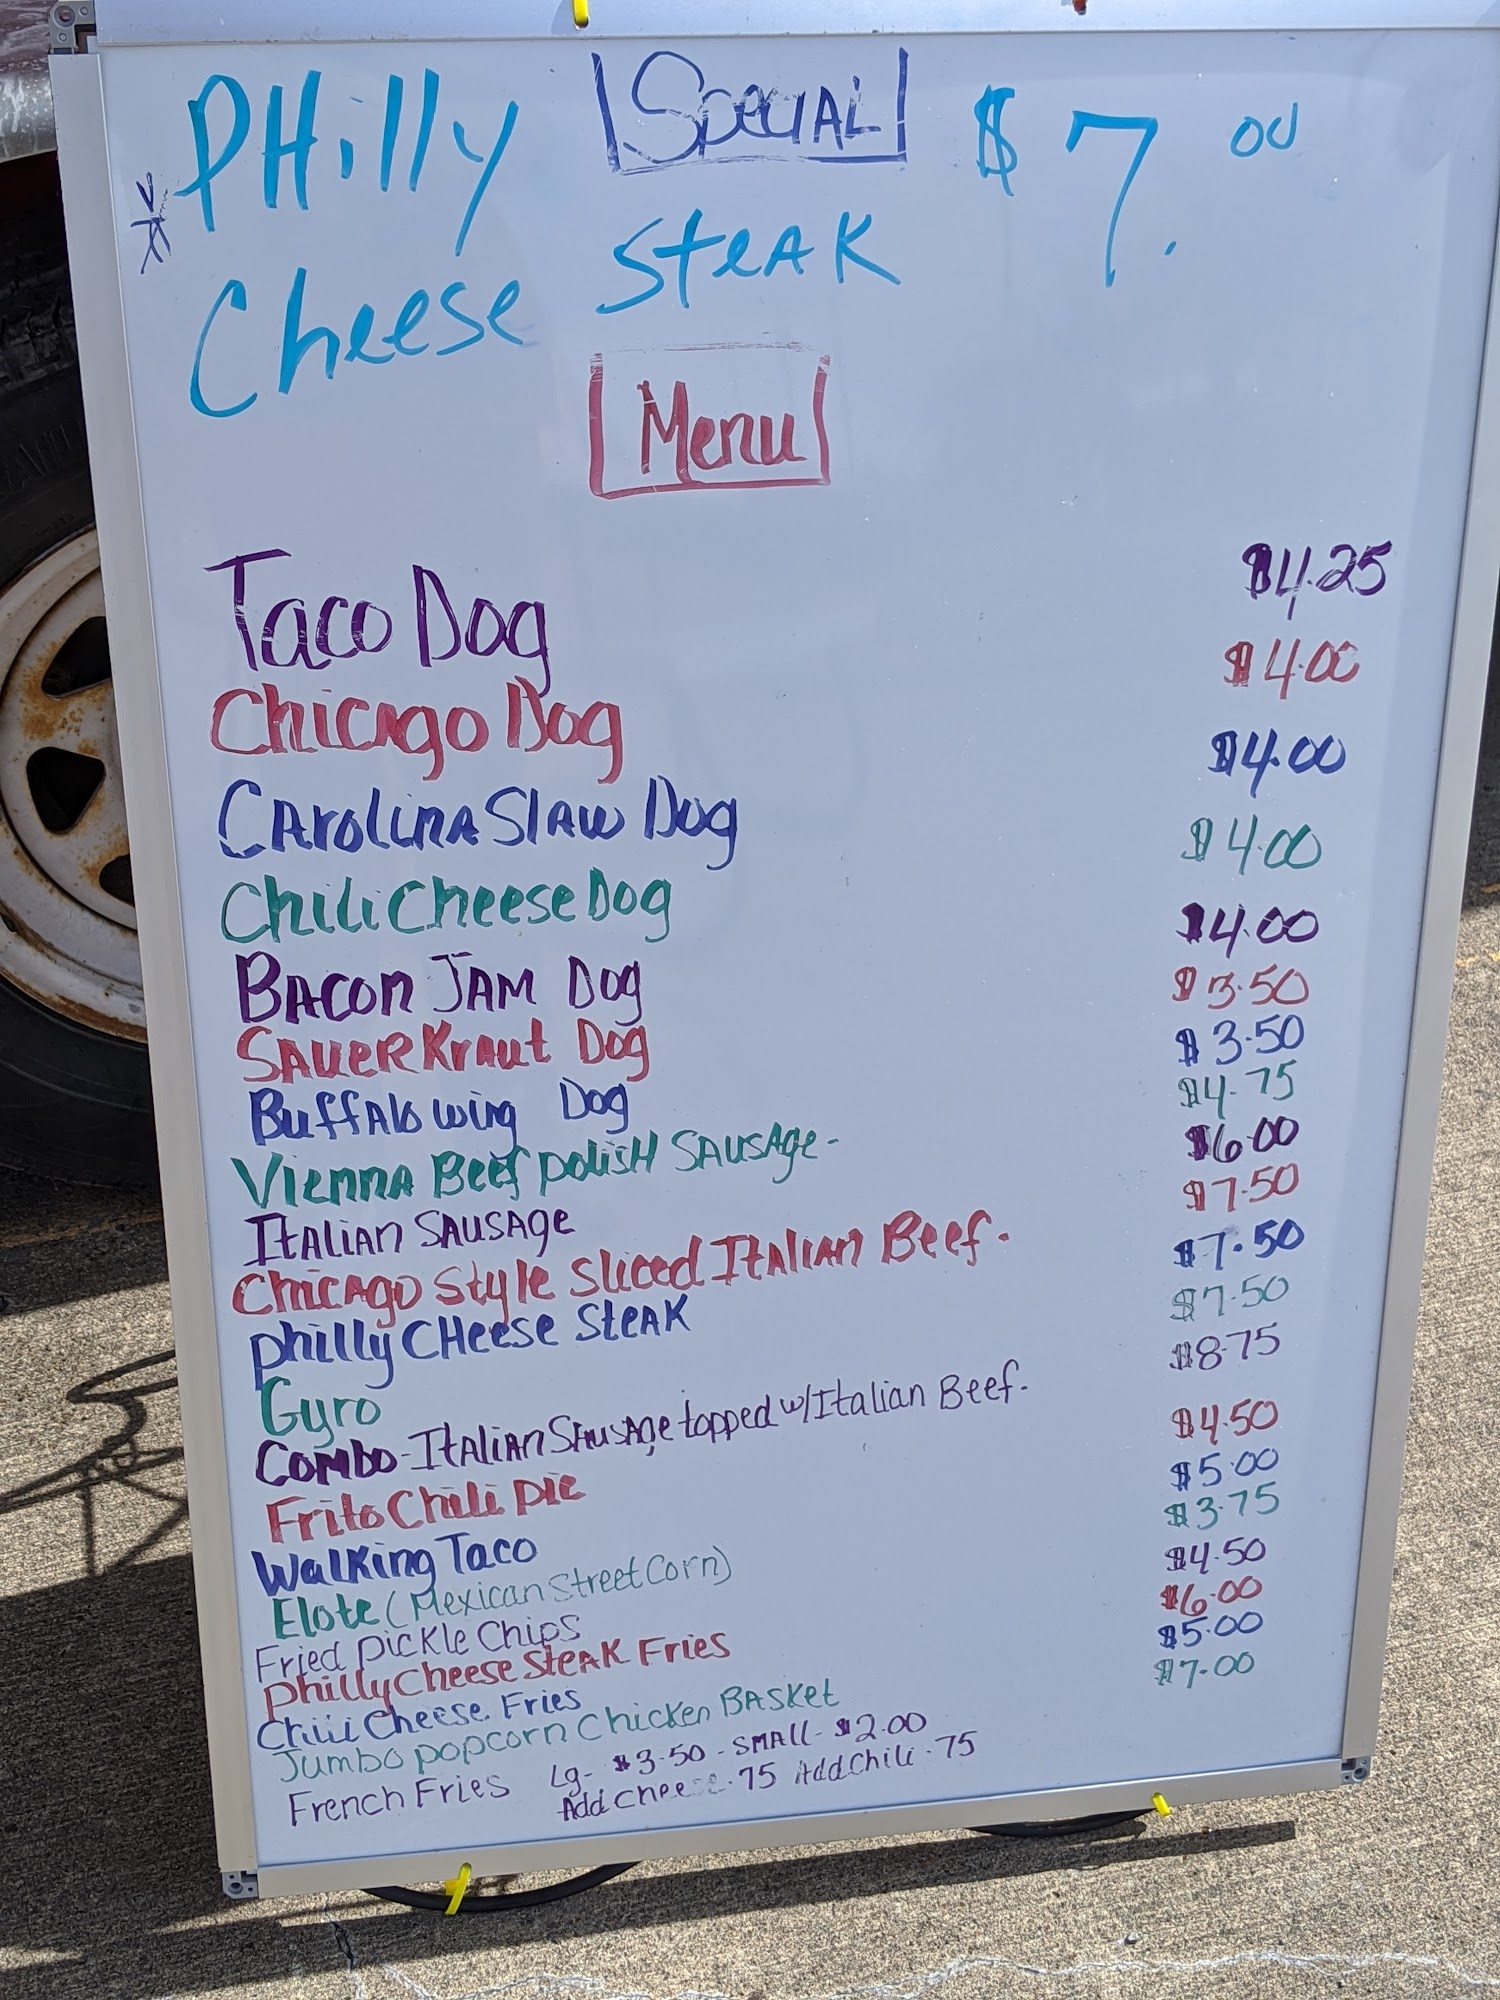 Special
PHilly $7.00
Cheese Steak
Menu
Taco Dog $4.25
Chicago Dog $4.00
Carolina Slaw Dog $4.00
Chili Cheese Dog $4.00
Bacon Jam Dog $4.00
SauerKraut Dog $3.50
Buffalo wing Dog $3.50
Vienna Beef polish Sausage- $4.75
Italian Sausage $6.00
Chicago Style Sliced Italian Beef. $7.50
philly CHeese Steak $7.50
Gyro $7.50
Combo-Italian Sausage topped w/Italian Beef. $8.75
Frito Chili pie $4.50
Walking Taco $5.00
Elote (Mexican Street Corn) $3.75
Fried pickle Chips $4.50
philly Cheese Steak Fries $6.00
Chili Cheese Fries $5.00
Jumbo popcorn Chicken Basket $7.00
French Fries Lg- $3.50 - Small- $2.00
Add Cheese .75 Add Chili .75